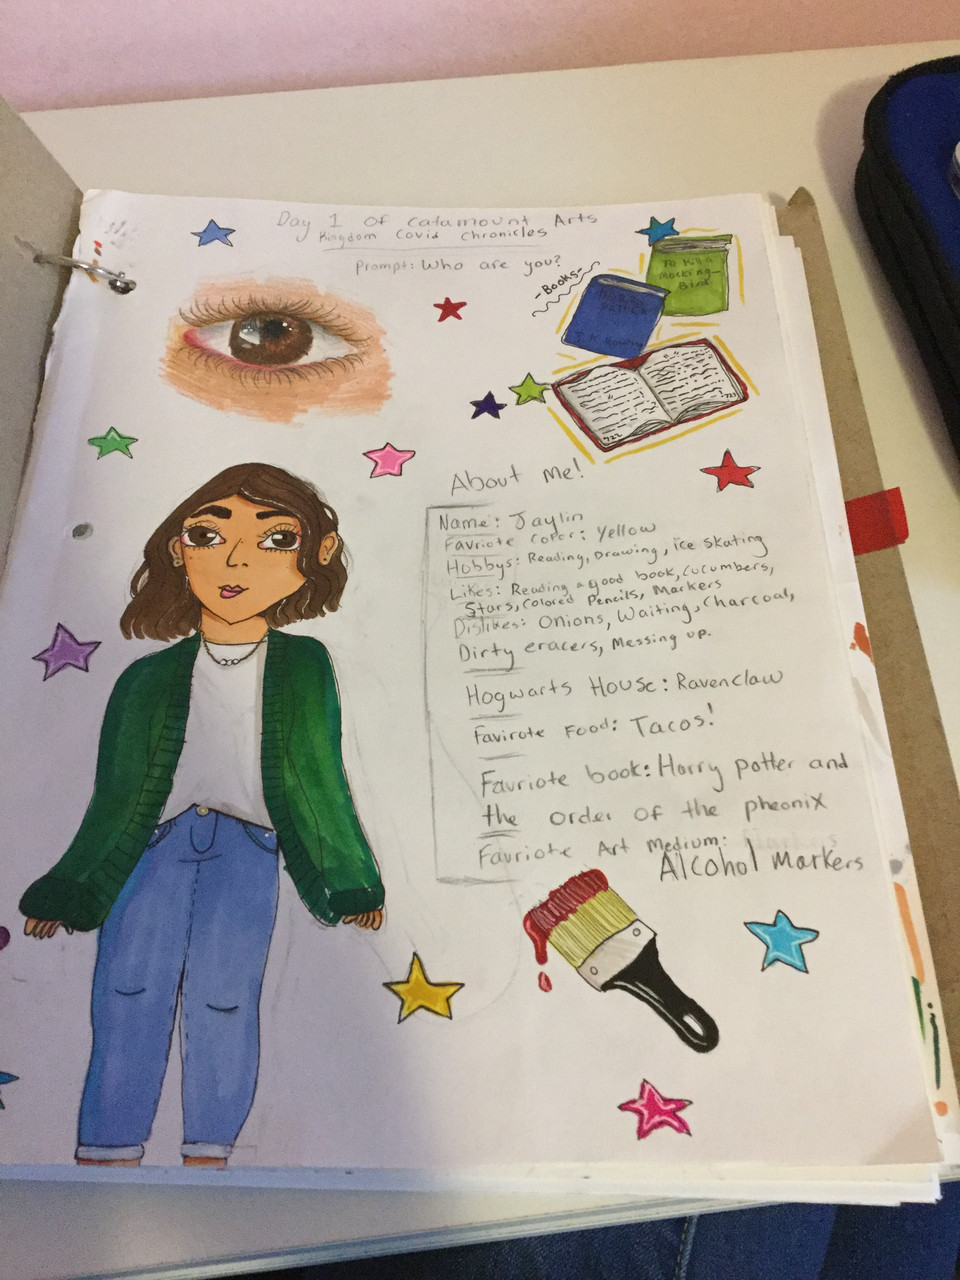 Day 1 of Catamount Arts
Kingdom Covid Chronicles
Prompt: Who are you?
-Books-
To Kill a
Mocking-
Bird
Harry
Potter
J.K Rowling
722
723
About Me!
Name: Jaylin
Favriote Coror: Yellow
Hobbys: Reading, Drawing, ice skating
Likes: Reading a good book, Cucumbers,
Stars, Colored Pencils, Markers
Dislikes: Onions, Waiting, Charcoal,
Dirty eracers, Messing up.
Hogwarts House: Ravenclaw
Favirote Food: Tacos!
Favriote book: Harry potter and
the order of the pheonix
Favriote Art Medium:
Alcohol Markers